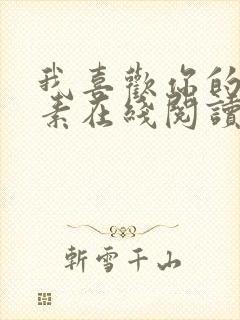 我喜歡你的
素在綫閱讀
斬雪千山